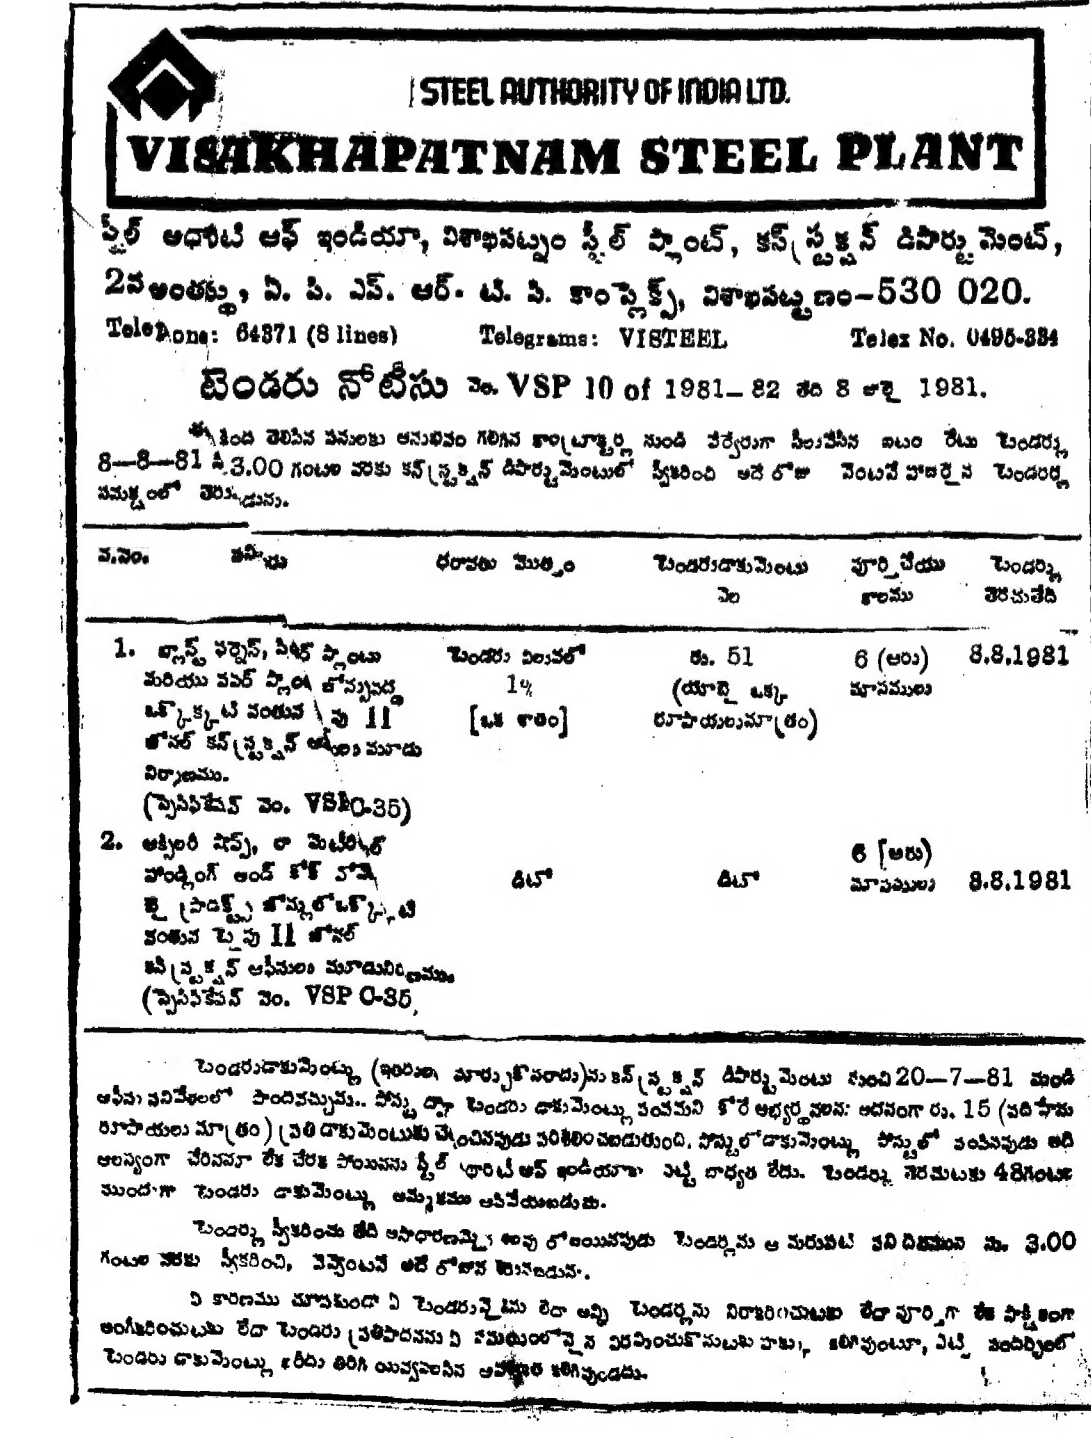 STEEL AUTHORITY OF INDIA LTD.
VISAKHAPATNAM STEEL PLANT
స్టీల్ అథారిటీ ఆఫ్ ఇండియా, విశాఖపట్నం స్టీల్ ప్లాంట్, కన్‌స్ట్రక్షన్ డిపార్టుమెంట్,
2వ అంతస్తు, ఏ. పి. ఎస్. ఆర్. టి. సి. కాంప్లెక్స్, విశాఖపట్టణం-530 020.
Telephone: 64371 (8 lines) Telegrams: VISTEEL Telex No. 0495-334
టెండరు నోటీసు నెం. VSP 10 of 1981-82 తేది 8 జులై 1981.
ఈ క్రింద తెలిపిన పనులకు అనుభవం గలిగిన కాంట్రాక్టర్ల నుండి వేర్వేరుగా సీలువేసిన ఐటం రేటు టెండర్లు
8-8-81 సా.3.00 గంటల వరకు కన్‌స్ట్రక్షన్ డిపార్టుమెంటులో స్వీకరించి అదే రోజు వెంటనే హాజరైన టెండరర్ల
సమక్షంలో
వ.నెం. ధరావతు మొత్తం టెండరుడాకుమెంటు పూర్తిచేయు టెండర్లు
వెల కాలము తెరచుతేది
1. బ్లాస్ట్ ఫర్నెస్, ప్లాంటు టెండరు విలువలో రు. 51 6 (ఆరు) 8.8.1981
మరియు పవర్ ప్లాంట్ జోన్సువద్ద 1% (యాభై ఒక్క మాసములు
ఒక్కొక్కటి వంతున టైపు II [ఒక శాతం] రూపాయలుమాత్రం)
జోనల్ కన్‌స్ట్రక్షన్ ఆఫీసులు మూడు
నిర్మాణము.
(స్పెసిఫికేషన్ నెం. VSP C-35)
2. ఆక్సిలరీ షాప్స్, రా మెటీరియల్ 6 [ఆరు)
హాండ్లింగ్ అండ్ కోక్ ఓవెన్ డిటో డిటో మాసములు 8.8.1981
బై ప్రొడక్ట్స్ జోన్సులోఒక్కొక్కటి
వంతున టైపు II జోనల్
కన్‌స్ట్రక్షన్ ఆఫీసులు మూడునిర్మాణము.
(స్పెసిఫికేషన్ నెం. VSP C-35,
టెండరుడాకుమెంట్లు (ఇతరులకు మార్చుకొనరాదు)ను కన్‌స్ట్రక్షన్ డిపార్టుమెంటు నుంచి 20-7-81 నుండి
ఆఫీసు పనివేళలలో పొందవచ్చును.. పోస్టు ద్వారా టెండరు డాకుమెంట్లు పంపమని కోరే అభ్యర్థనలను అదనంగా రు. 15 (పదిహేను
రూపాయలు మాత్రం) ప్రతి డాకుమెంటుకు చెల్లించినపుడు పరిశీలించబడుతుంది. పోస్టులో డాకుమెంట్లు పోస్టులో పంపినపుడు అది
ఆలస్యంగా చేరినను లేక చేరక పోయినను స్టీల్ అథారిటీ ఆఫ్ ఇండియాకు ఎట్టి బాధ్యత లేదు. టెండర్లు తెరచుటకు 48గంటల
ముందుగా టెండరు డాకుమెంట్లు అమ్మకము ఆపివేయబడును.
టెండర్లు స్వీకరించు తేది అసాధారణమైన శలవు రోజయినపుడు టెండర్లను ఆ మరుసటి పని దినమున సా. 3.00
గంటల వరకు స్వీకరించి, వెన్వెంటనే అదే రోజున తెరువబడును.
ఏ కారణము చూపకుండా ఏ టెండరునైనను లేదా అన్ని టెండర్లను నిరాకరించుటకు లేదా పూర్తిగా లేక పాక్షికంగా
అంగీకరించుటకు లేదా టెండరు ప్రతిపాదనను ఏ సమయంలోనైన విరమించుకొనుటకు హక్కు కలిగివుంటూ, ఎట్టి సందర్భంలో
టెండరు డాకుమెంట్లు ఖరీదు తిరిగి యివ్వవలసిన ఆవశ్యకత కలిగివుండదు.